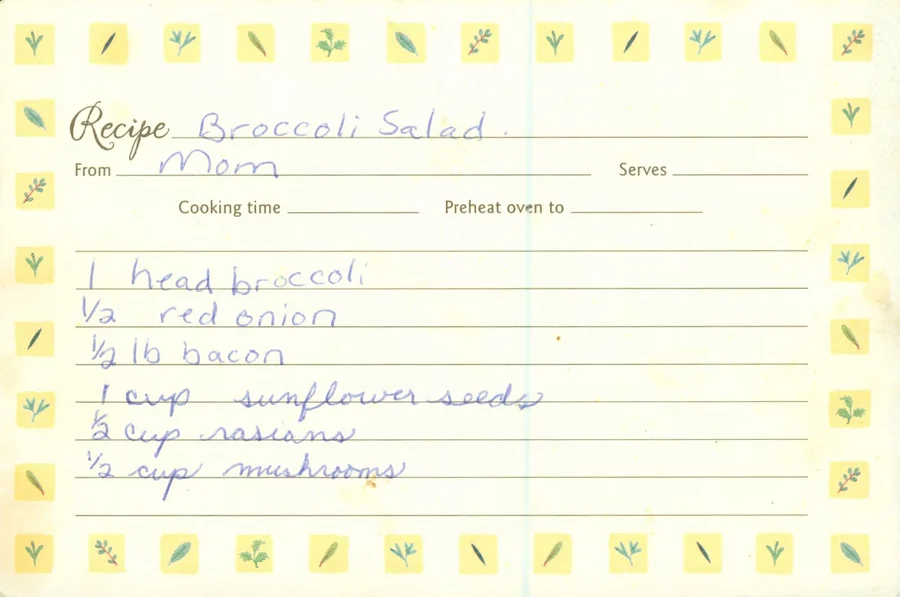 Recipe Broccoli Salad.
From Mom Serves
Cooking time Preheat oven to
1 head broccoli
1/2 red onion
1/2 lb bacon
1 cup sunflower seeds
1/2 cup rasians
1/2 cup mushrooms